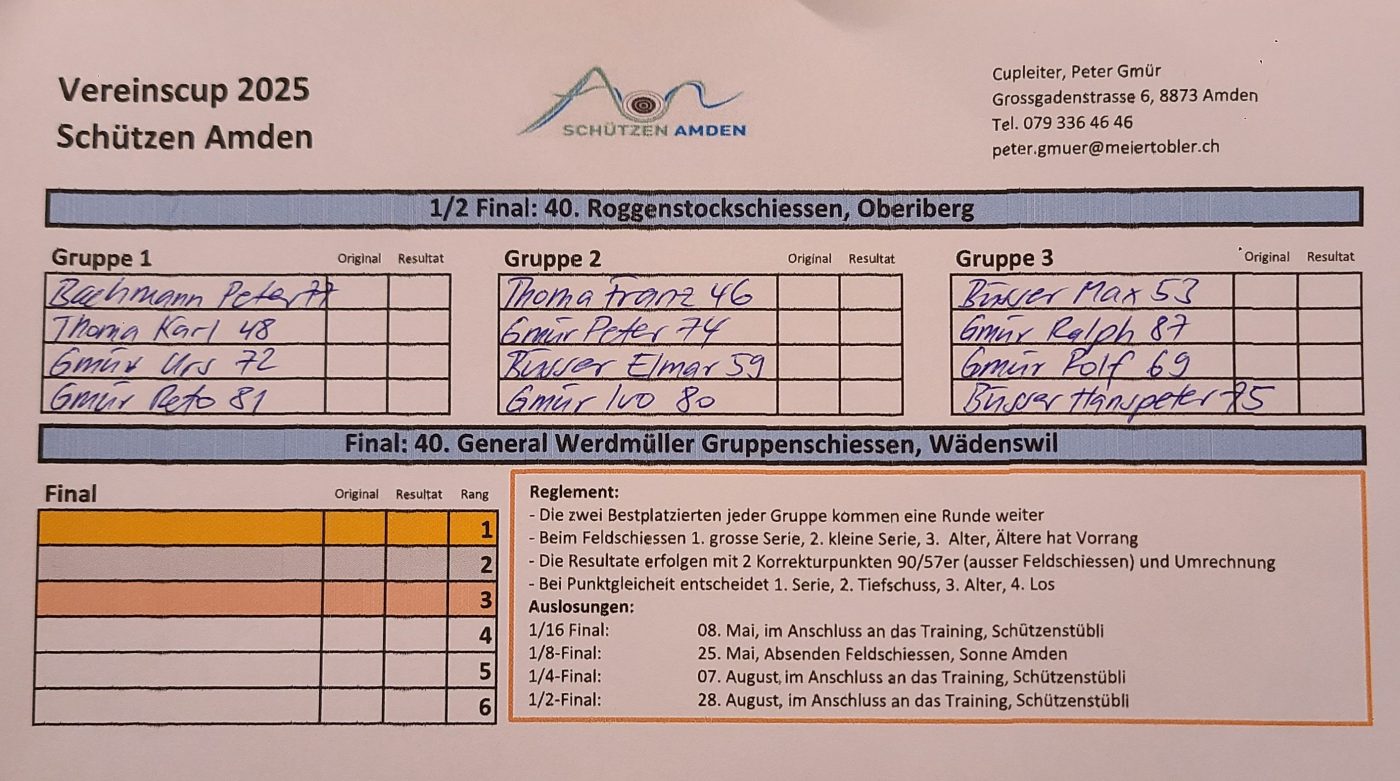 Vereinscup 2025
Schützen Amden
SCHÜTZEN AMDEN
Cupleiter, Peter Gmür
Grossgadenstrasse 6, 8873 Amden
Tel. 079 336 46 46
peter.gmuer@meiertobler.ch
1/2 Final: 40. Roggenstockschiessen, Oberiberg
Gruppe 1 Original Resultat
Bachmann Peter 77
Thoma Karl 48
Gmür Urs 72
Gmür Reto 81
Gruppe 2 Original Resultat
Thoma Franz 46
Gmür Peter 74
Büsser Elmar 59
Gmür Ivo 80
Gruppe 3 Original Resultat
Büsser Max 53
Gmür Ralph 87
Gmür Rolf 69
Büsser Hanspeter 75
Final: 40. General Werdmüller Gruppenschiessen, Wädenswil
Final Original Resultat Rang
1
2
3
4
5
6
Reglement:
- Die zwei Bestplatzierten jeder Gruppe kommen eine Runde weiter
- Beim Feldschiessen 1. grosse Serie, 2. kleine Serie, 3. Alter, Ältere hat Vorrang
- Die Resultate erfolgen mit 2 Korrekturpunkten 90/57er (ausser Feldschiessen) und Umrechnung
- Bei Punktgleicheit entscheidet 1. Serie, 2. Tiefschuss, 3. Alter, 4. Los
Auslosungen:
1/16 Final: 08. Mai, im Anschluss an das Training, Schützenstübli
1/8-Final: 25. Mai, Absenden Feldschiessen, Sonne Amden
1/4-Final: 07. August, im Anschluss an das Training, Schützenstübli
1/2-Final: 28. August, im Anschluss an das Training, Schützenstübli